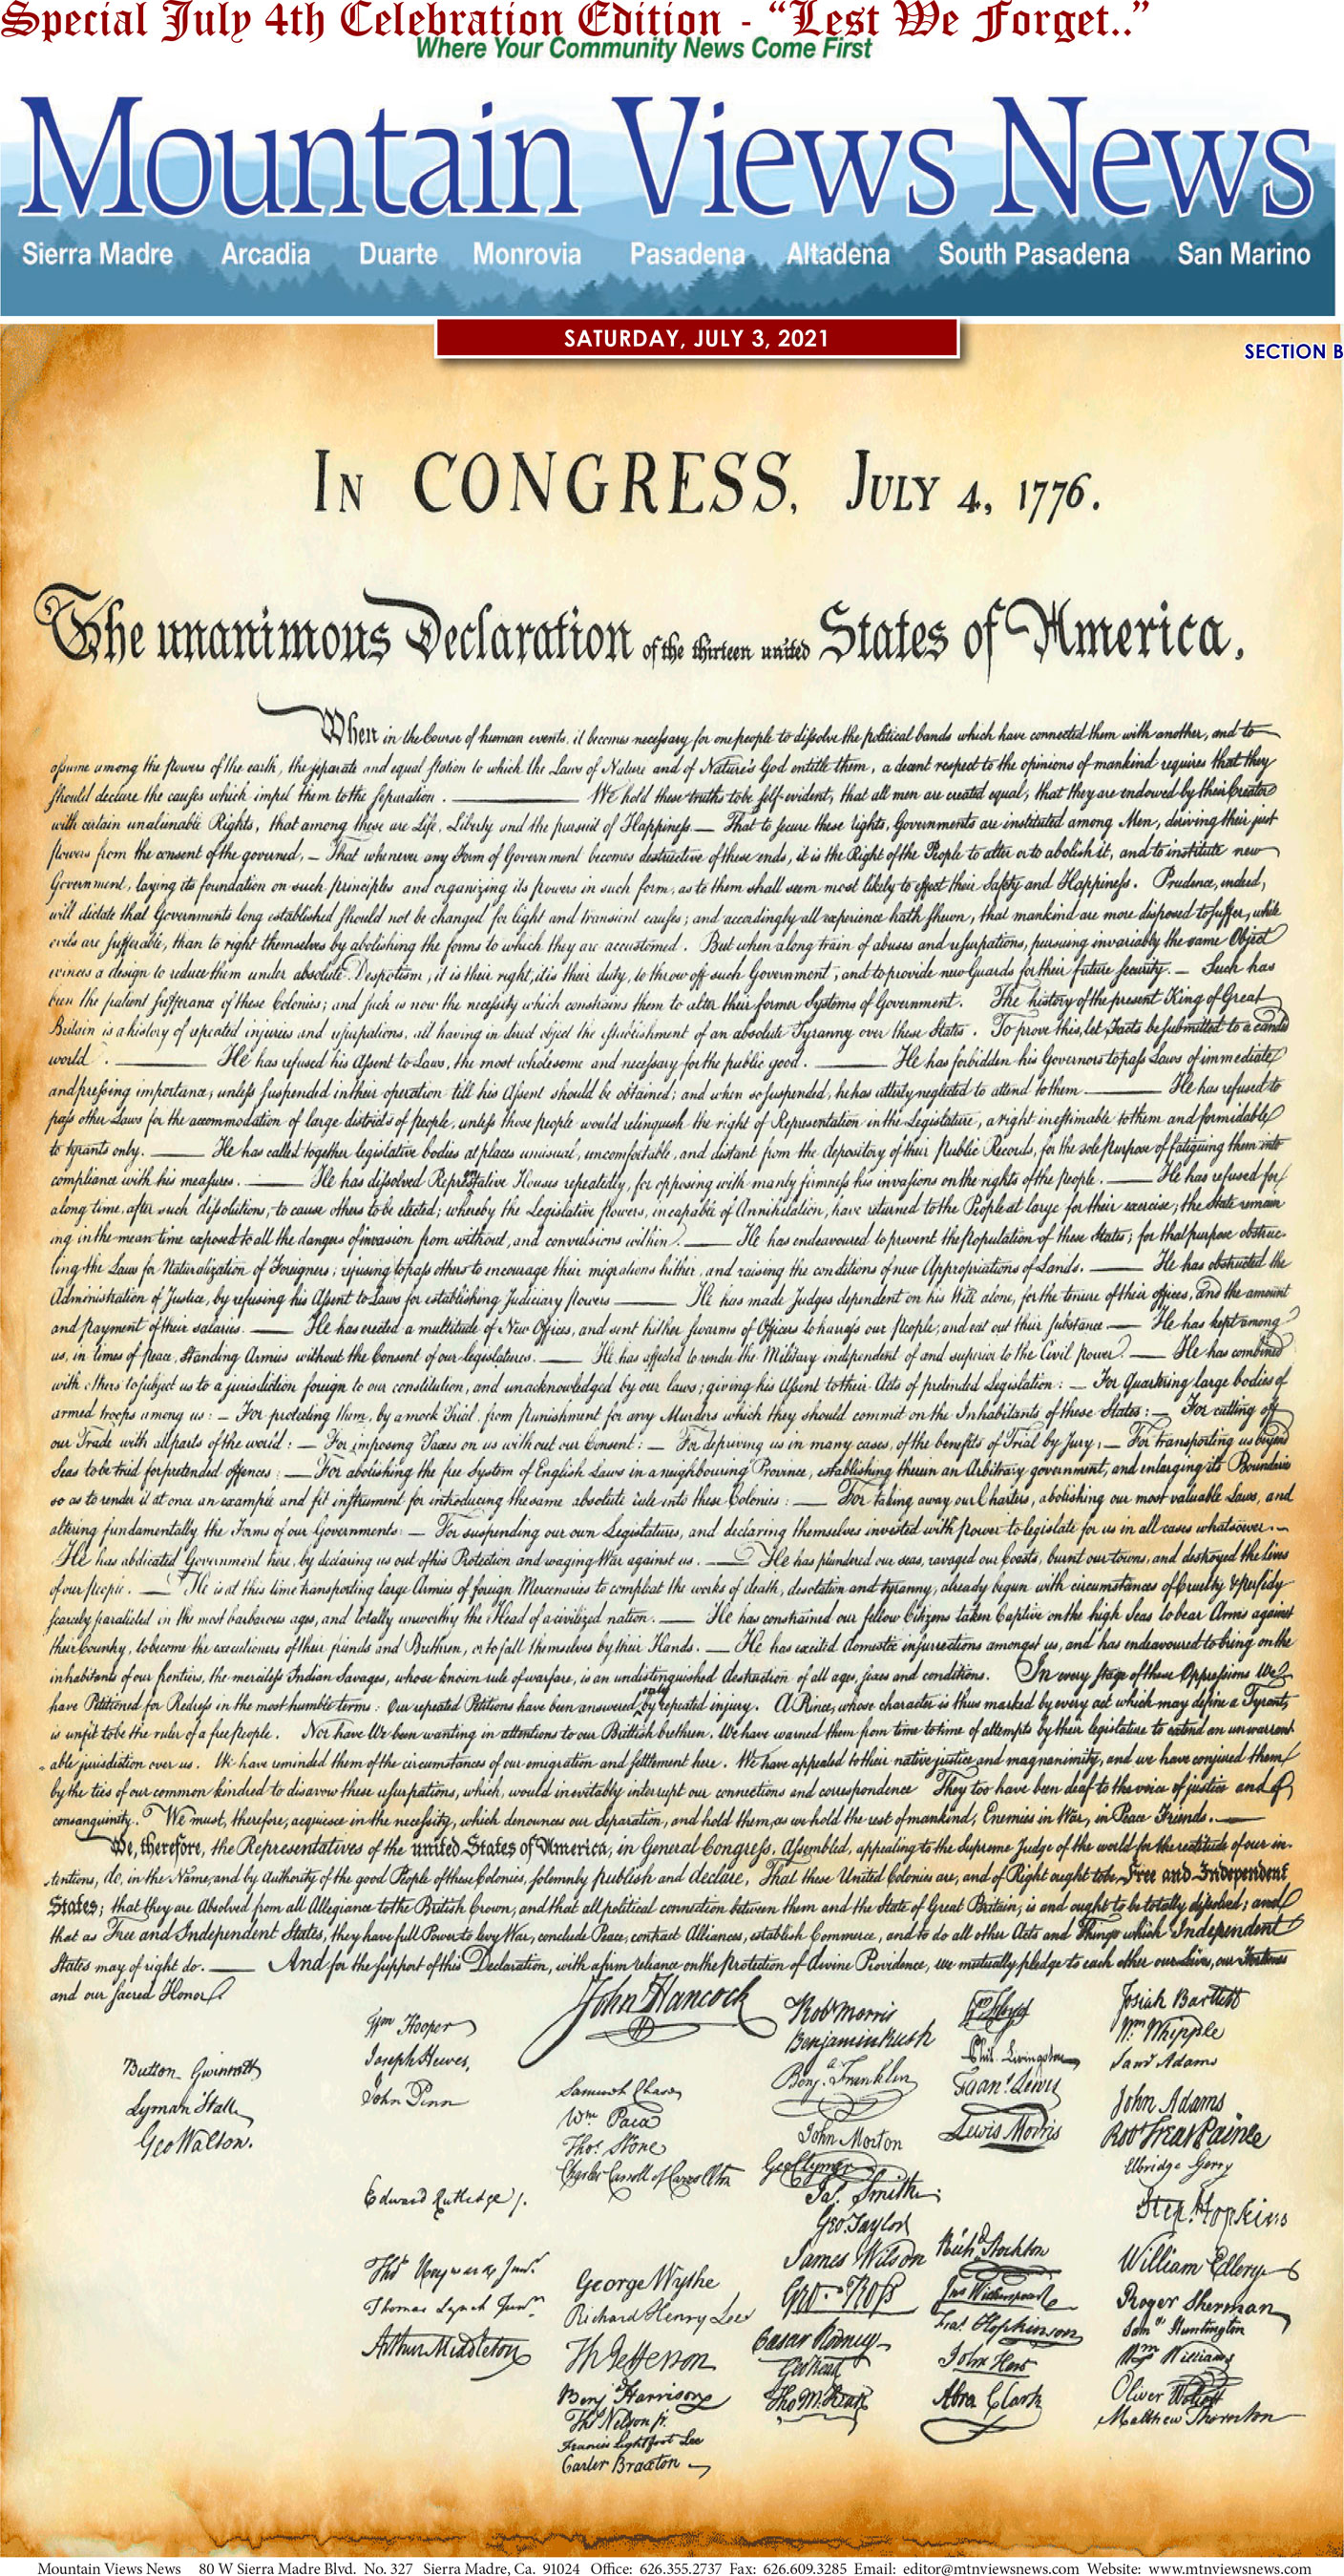 Special July 4th Celebration Edition - “Lest We Forget..”
Where Your Community News Come First
Mountain Views News
Sierra Madre Arcadia Duarte Monrovia Pasadena Altadena South Pasadena San Marino
SATURDAY, JULY 3, 2021
SECTION B
IN CONGRESS, JULY 4, 1776.
The unanimous Declaration of the thirteen united States of America,
When in the Course of human events, it becomes necessary for one people to dissolve the political bands which have connected them with another, and to
assume among the powers of the earth, the separate and equal station to which the Laws of Nature and of Nature's God entitle them, a decent respect to the opinions of mankind requires that they
should declare the causes which impel them to the separation. — We hold these truths to be self-evident, that all men are created equal, that they are endowed by their Creator
with certain unalienable Rights, that among these are Life, Liberty and the pursuit of Happiness. — That to secure these rights, Governments are instituted among Men, deriving their just
powers from the consent of the governed, — That whenever any Form of Government becomes destructive of these ends, it is the Right of the People to alter or to abolish it, and to institute new
Government, laying its foundation on such principles and organizing its powers in such form, as to them shall seem most likely to effect their Safety and Happiness. Prudence, indeed,
will dictate that Governments long established should not be changed for light and transient causes; and accordingly all experience hath shewn, that mankind are more disposed to suffer, while
evils are sufferable, than to right themselves by abolishing the forms to which they are accustomed. But when a long train of abuses and usurpations, pursuing invariably the same Object
evinces a design to reduce them under absolute Despotism, it is their right, it is their duty, to throw off such Government, and to provide new Guards for their future security. — Such has
been the patient sufferance of these Colonies; and such is now the necessity which constrains them to alter their former Systems of Government. The history of the present King of Great
Britain is a history of repeated injuries and usurpations, all having in direct object the establishment of an absolute Tyranny over these States. To prove this, let Facts be submitted to a candid
world. — He has refused his Assent to Laws, the most wholesome and necessary for the public good. — He has forbidden his Governors to pass Laws of immediate
and pressing importance, unless suspended in their operation till his Assent should be obtained; and when so suspended, he has utterly neglected to attend to them — He has refused to
pass other Laws for the accommodation of large districts of people, unless those people would relinquish the right of Representation in the Legislature, a right inestimable to them and formidable
to tyrants only. — He has called together legislative bodies at places unusual, uncomfortable, and distant from the depository of their Public Records, for the sole purpose of fatiguing them into
compliance with his measures. — He has dissolved Representative Houses repeatedly, for opposing with manly firmness his invasions on the rights of the people. — He has refused for
a long time, after such dissolutions, to cause others to be elected; whereby the Legislative powers, incapable of Annihilation, have returned to the People at large for their exercise; the State remain
ing in the mean time exposed to all the dangers of invasion from without, and convulsions within. — He has endeavoured to prevent the population of these States; for that purpose obstruc-
ting the Laws for Naturalization of Foreigners; refusing to pass others to encourage their migrations hither, and raising the conditions of new Appropriations of Lands. — He has obstructed the
Administration of Justice, by refusing his Assent to Laws for establishing Judiciary powers — He has made Judges dependent on his Will alone, for the tenure of their offices, and the amount
and payment of their salaries. — He has erected a multitude of New Offices, and sent hither swarms of Officers to harrass our people, and eat out their substance — He has kept among
us, in times of peace, Standing Armies without the Consent of our legislatures. — He has affected to render the Military independent of and superior to the Civil power. — He has combined
with others to subject us to a jurisdiction foreign to our constitution, and unacknowledged by our laws; giving his Assent to their Acts of pretended Legislation: — For Quartering large bodies of
armed troops among us: — For protecting them, by a mock Trial, from punishment for any Murders which they should commit on the Inhabitants of these States: — For cutting off
our Trade with all parts of the world: — For imposing Taxes on us without our Consent: — For depriving us in many cases, of the benefits of Trial by Jury: — For transporting us beyond
Seas to be tried for pretended offences: — For abolishing the free System of English Laws in a neighbouring Province, establishing therein an Arbitrary government, and enlarging its Boundaries
so as to render it at once an example and fit instrument for introducing the same absolute rule into these Colonies: — For taking away our Charters, abolishing our most valuable Laws, and
altering fundamentally the Forms of our Governments: — For suspending our own Legislatures, and declaring themselves invested with power to legislate for us in all cases whatsoever. —
He has abdicated Government here, by declaring us out of his Protection and waging War against us. — He has plundered our seas, ravaged our Coasts, burnt our towns, and destroyed the lives
of our people. — He is at this time transporting large Armies of foreign Mercenaries to compleat the works of death, desolation and tyranny, already begun with circumstances of Cruelty & perfidy
scarcely paralleled in the most barbarous ages, and totally unworthy the Head of a civilized nation. — He has constrained our fellow Citizens taken Captive on the high Seas to bear Arms against
their Country, to become the executioners of their friends and Brethren, or to fall themselves by their Hands. — He has excited domestic insurrections amongst us, and has endeavoured to bring on the
inhabitants of our frontiers, the merciless Indian Savages, whose known rule of warfare, is an undistinguished destruction of all ages, sexes and conditions. In every stage of these Oppressions We
have Petitioned for Redress in the most humble terms: Our repeated Petitions have been answered only by repeated injury. A Prince, whose character is thus marked by every act which may define a Tyrant,
is unfit to be the ruler of a free people. Nor have We been wanting in attentions to our Brittish brethren. We have warned them from time to time of attempts by their legislature to extend an unwarrant
able jurisdiction over us. We have reminded them of the circumstances of our emigration and settlement here. We have appealed to their native justice and magnanimity, and we have conjured them
by the ties of our common kindred to disavow these usurpations, which, would inevitably interrupt our connections and correspondence They too have been deaf to the voice of justice and of
consanguinity. We must, therefore, acquiesce in the necessity, which denounces our Separation, and hold them, as we hold the rest of mankind, Enemies in War, in Peace Friends. —
We, therefore, the Representatives of the united States of America, in General Congress, Assembled, appealing to the Supreme Judge of the world for the rectitude of our in-
tentions, do, in the Name, and by Authority of the good People of these Colonies, solemnly publish and declare, That these United Colonies are, and of Right ought to be Free and Independent
States; that they are Absolved from all Allegiance to the British Crown, and that all political connection between them and the State of Great Britain, is and ought to be totally dissolved; and
that as Free and Independent States, they have full Power to levy War, conclude Peace, contract Alliances, establish Commerce, and to do all other Acts and Things which Independent
States may of right do. — And for the support of this Declaration, with a firm reliance on the Protection of divine Providence, we mutually pledge to each other our Lives, our Fortunes
and our sacred Honor.
Button Gwinnett
Lyman Hall
Geo Walton.
Wm Hooper
Joseph Hewes,
John Penn
Edward Rutledge /.
Thos Heyward Junr.
Thomas Lynch Junr.
Arthur Middleton
John Hancock
Samuel Chase
Wm. Paca
Thos. Stone
Charles Carroll of Carrollton
George Wythe
Richard Henry Lee
Th Jefferson
Benj Harrison
Thos Nelson jr.
Francis Lightfoot Lee
Carter Braxton
Robt Morris
Benjamin Rush
Benj. Franklin
John Morton
Geo Clymer
Jas. Smith
Geo. Taylor
James Wilson
Geo. Ross
Caesar Rodney
Geo Read
Tho M:Kean
Wm Floyd
Phil. Livingston
Frans. Lewis
Lewis Morris
Richd. Stockton
Jno Witherspoon
Fras. Hopkinson
John Hart
Abra Clark
Josiah Bartlett
Wm: Whipple
Saml Adams
John Adams
Robt Treat Paine
Elbridge Gerry
Step. Hopkins
William Ellery
Roger Sherman
Samel Huntington
Wm Williams
Oliver Wolcott
Matthew Thornton
Mountain Views News 80 W Sierra Madre Blvd. No. 327 Sierra Madre, Ca. 91024 Office: 626.355.2737 Fax: 626.609.3285 Email: editor@mtnviewsnews.com Website: www.mtnviewsnews.com